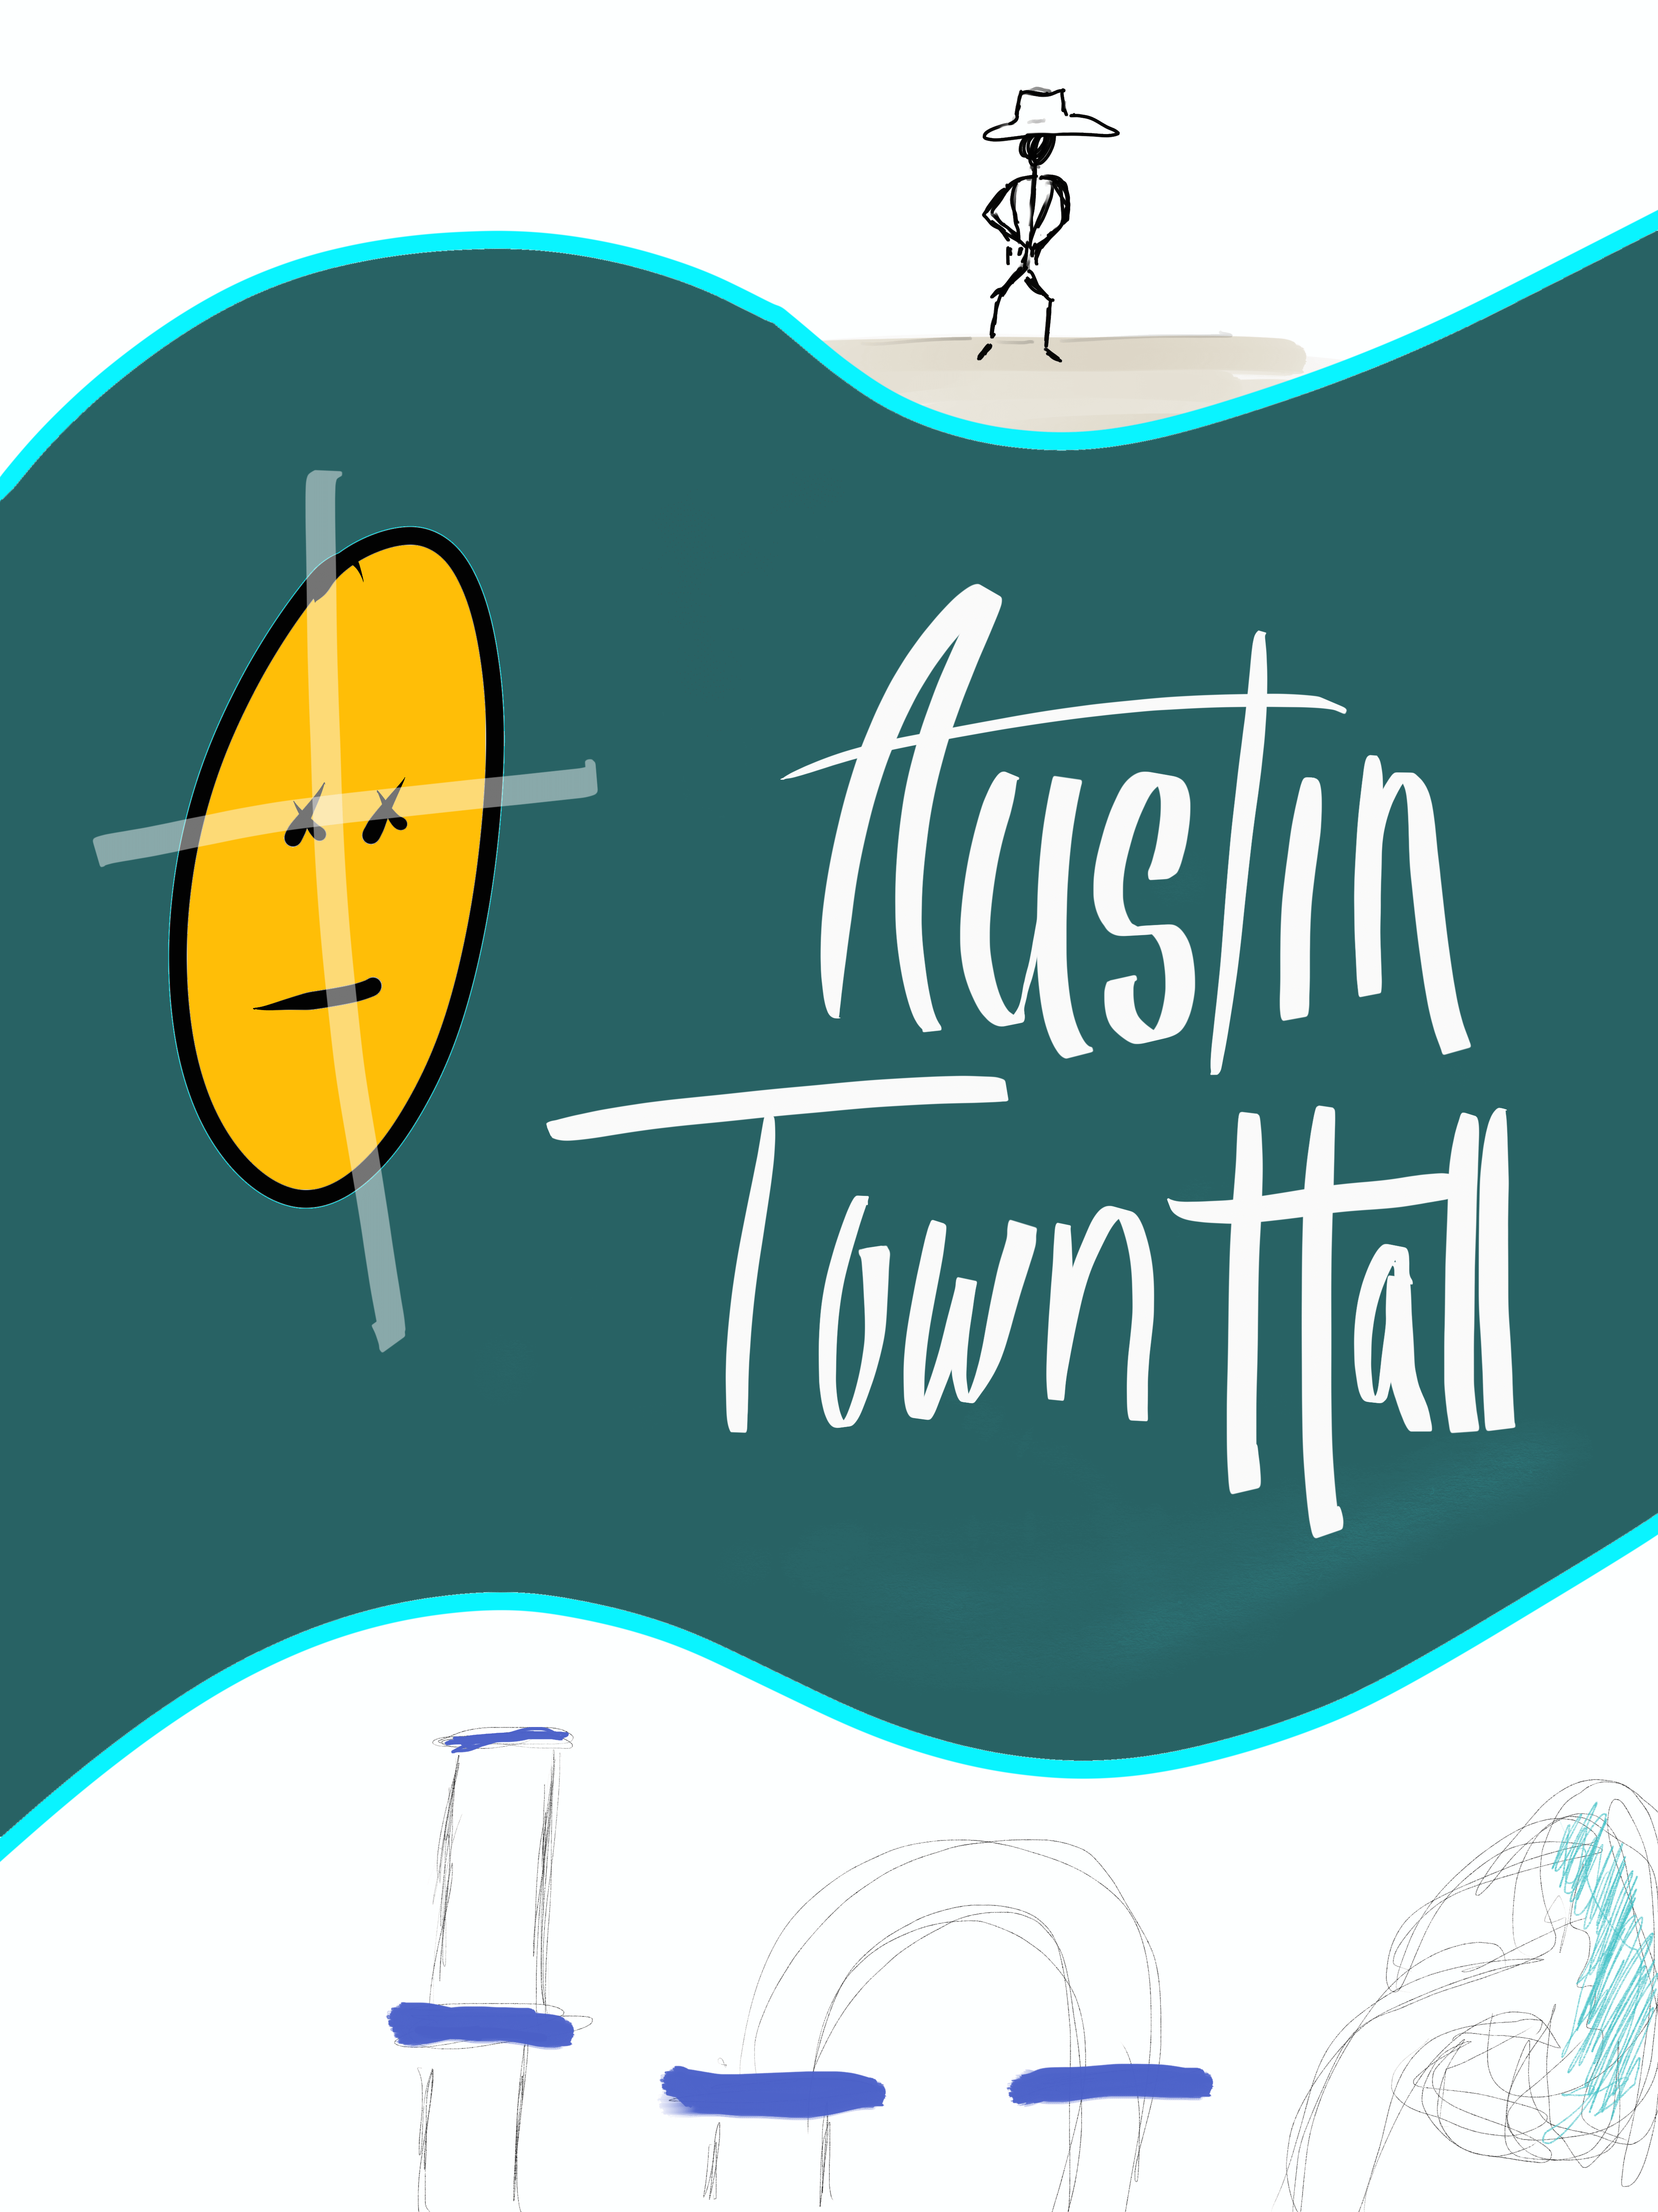 Austin
Town Hall